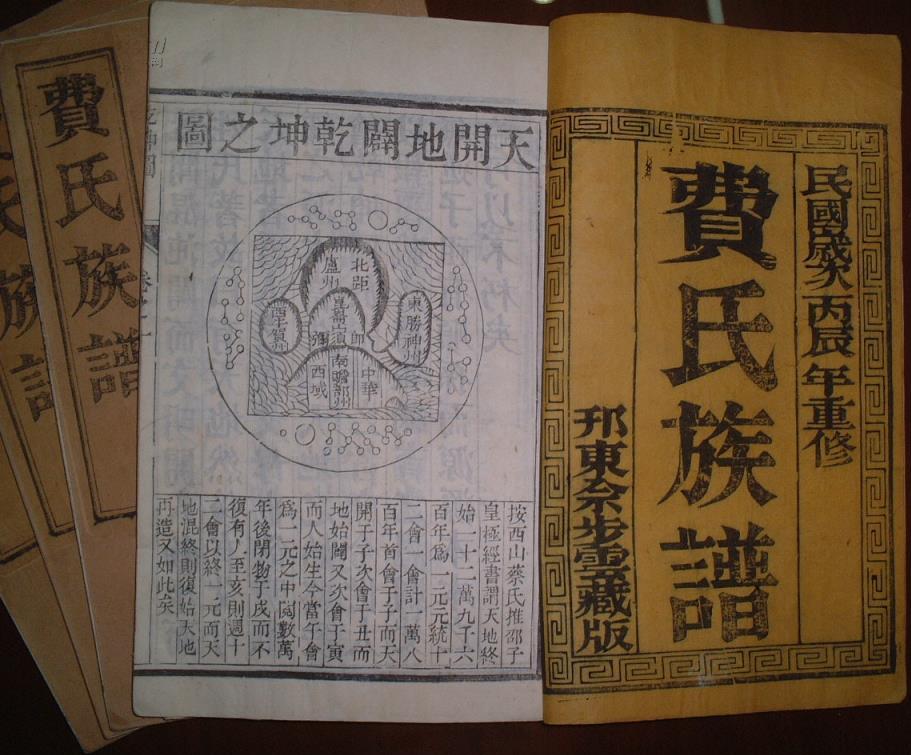 民國歲次丙辰年重修
費氏族譜
邗東佘步雲藏版
天開地闢乾坤之圖
北距
盧州
東勝神州
西牛賀州
中華
南瞻部州
西域
按西山蔡氏推邵子
皇極經書謂天地終
始一十二萬九千六
百年為一元元統十
二會一會計一萬八
百年首會于子而天
開于子次會于丑而
地始闢又次會于寅
而人始生今當午會
為一元之中閱數萬
年後閉物于戌而不
復有人至亥則週十
二會以終一元而天
地混終則復始天地
再造又如此矣
費氏族譜
氏族譜